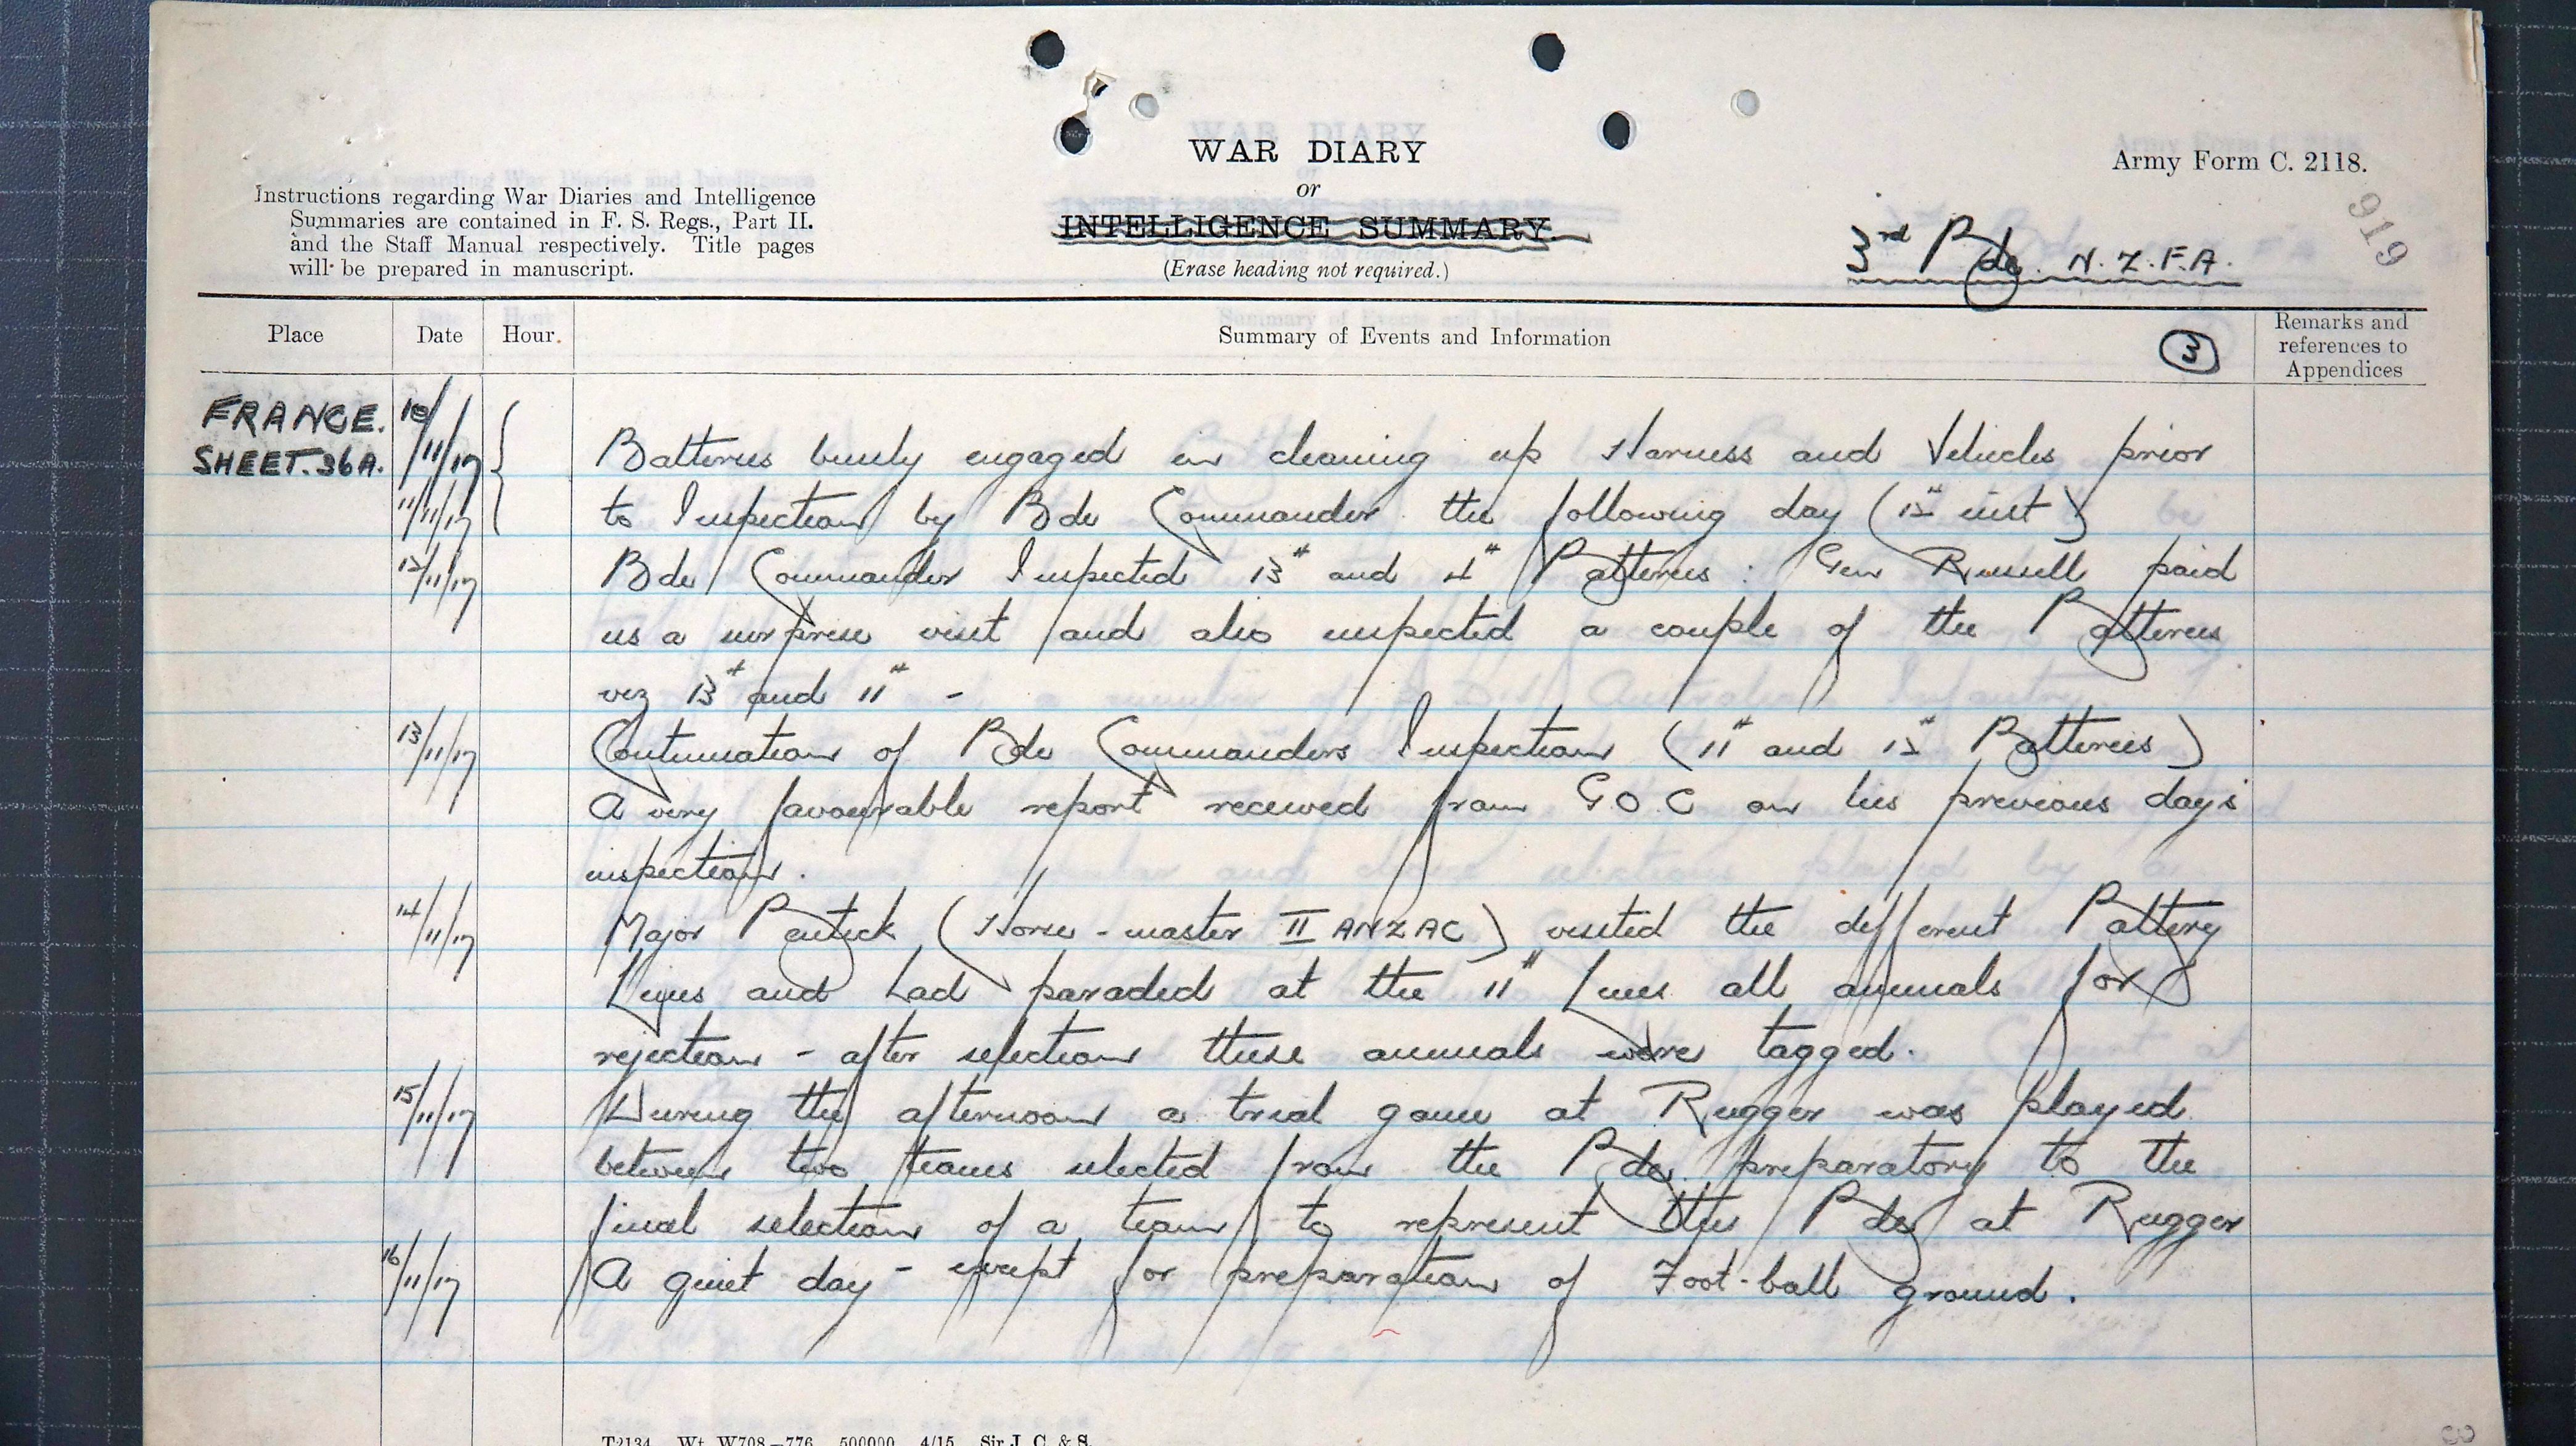 WAR DIARY
or
INTELLIGENCE SUMMARY.
(Erase heading not required.)
Army Form C. 2118.
Instructions regarding War Diaries and Intelligence
Summaries are contained in F. S. Regs., Part II.
and the Staff Manual respectively. Title pages
will be prepared in manuscript.
919
3rd Bde. N.Z.F.A.
Place Date Hour. Summary of Events and Information Remarks and references to Appendices
3
FRANCE. 10/11/17
SHEET.36A.
Batteries busily engaged in cleaning up Harness and Vehicles prior
11/11/17 to Inspection by Bde Commander the following day (12th inst)
12/11/17 Bde Commander Inspected 13th and 4th Batteries: Gen Russell paid
us a surprise visit and also inspected a couple of the Batteries
viz 13th and 11th -
13/11/17 Continuation of Bde Commanders Inspection (11th and 12th Batteries)
A very favourable report received from G.O.C on his previous day's
inspection.
14/11/17 Major (Horse-master II ANZAC) visited the different Battery
Lines and had paraded at the 11th Lines all animals for
rejection - after selection these animals were tagged.
15/11/17 During the afternoon a trial game at Rugger was played
between two teams selected from the Bde. preparatory to the
final selection of a team to represent the Bde at Rugger
16/11/17 A quiet day - except for preparation of Foot-ball ground.
T2134. Wt. W708-776. 500000. 4/15. Sir J. C. & S.